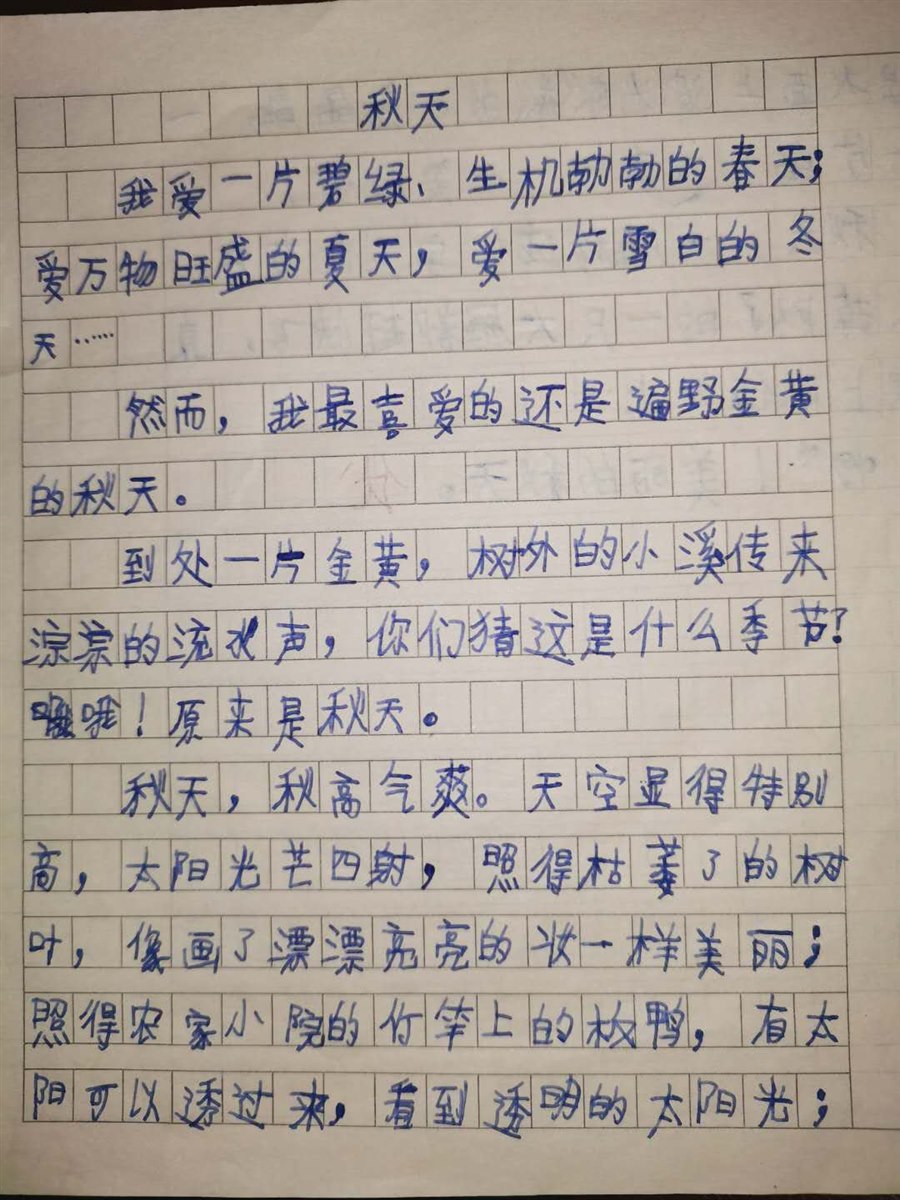 秋天
我爱一片碧绿、生机勃勃的春天;
爱万物旺盛的夏天,爱一片雪白的冬
天……
然而,我最喜爱的还是遍野金黄
的秋天。
到处一片金黄,树外的小溪传来
淙淙的流水声,你们猜这是什么季节?
哦!原来是秋天。
秋天,秋高气爽。天空显得特别
高,太阳光芒四射,照得枯萎了的树
叶,像画了漂漂亮亮的妆一样美丽;
照得农家小院的竹竿上的板鸭,有太
阳可以透过来,看到透明的太阳光;